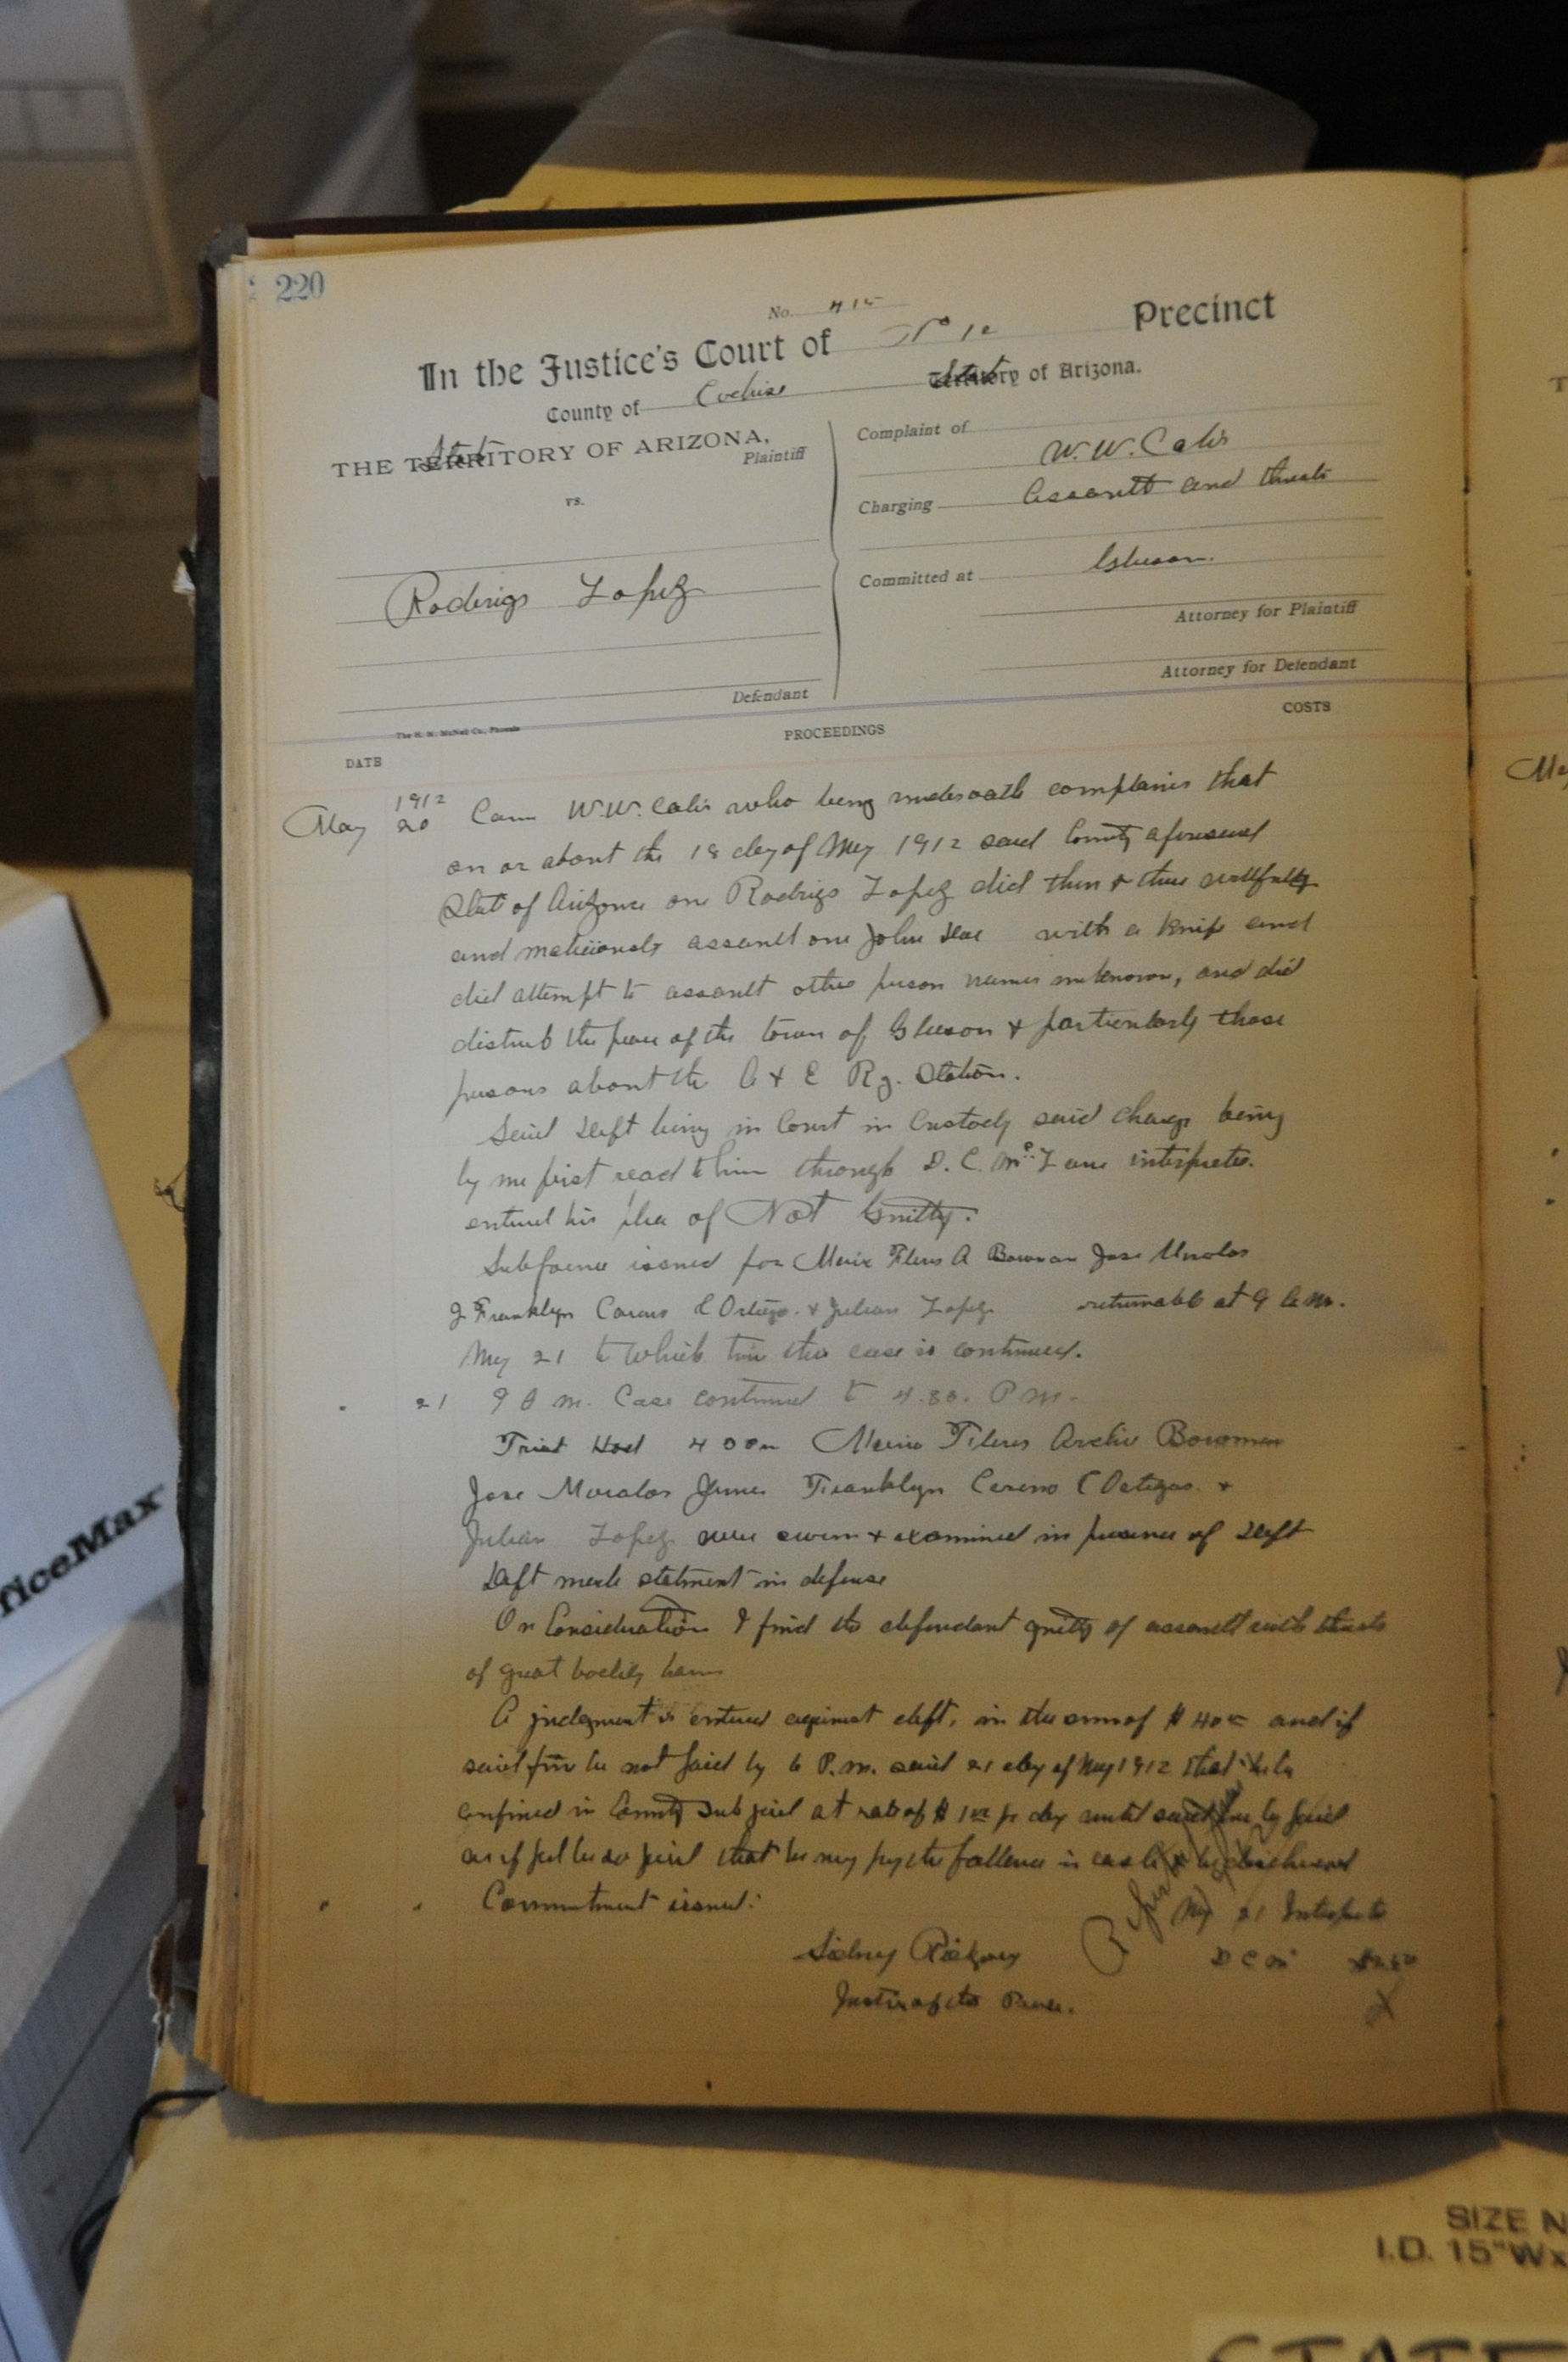 220
No. 415
In the Justice's Court of No 12 Precinct
County of Cochise State Territory of Arizona.
State
THE TERRITORY OF ARIZONA,
Plaintiff
vs.
Rodrigo Lopez
Defendant
Complaint of
W. W. Calis
Charging Assault and threats
Committed at Gleeson.
Attorney for Plaintiff
Attorney for Defendant
The H. H. McNeil Co., Phoenix
DATE
PROCEEDINGS
COSTS
1912
May 20 Came W.W. Calis who being under oath complains that
on or about the 18 day of May 1912 said County aforesaid
State of Arizona one Rodrigo Lopez did then & there willfully
and maliciously assault one John Doe with a Knife and
did attempt to assault other person names unknown, and did
disturb the peace of the town of Gleeson & particularly those
persons about the A & E Ry. Station.
Said Deft being in Court in Custody said charge being
by me first read to him through D. C. interpreter.
entered his plea of Not Guilty.
Subpoena issued for A Bowman Jose Morales
J Franklyn C Ortega & Julian Lopez returnable at 9 A.M.
May 21 to which time this case is continued.
21 9 A m. Case continued to 4.30. P m.
Trial Had 4 30 Archie Bowman
Jose Morales James Franklyn C Ortegas &
Julian Lopez were sworn & examined in presence of Deft
Deft made statment in defense
On Consideration I find the defendant guilty of assault with threats
of great bodily harm
A judgment is entered against deft, in the sum of $ 40 and if
said fine be not paid by 6 P.m. said 21 day of May 1912 that he be
confined in County Sub jail at rate of $ 1 pr day until said fine be paid
that he may pay the ballence in cash & be discharged
Commitment issued.
May 21 Interpreter
Sidney
D C
Justice of the Peace.
ficeMax
SIZE N
I.D. 15"Wx
STATE